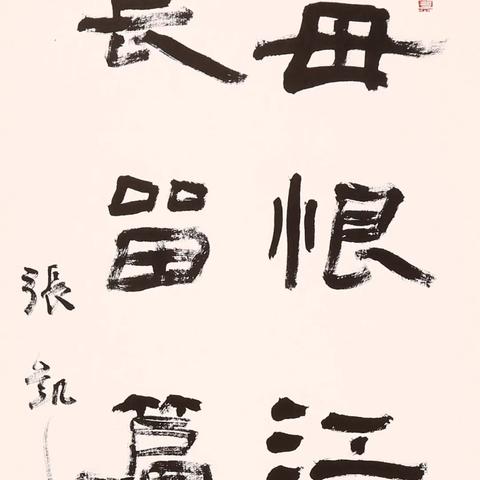 毋恨江
長留篇
張凱